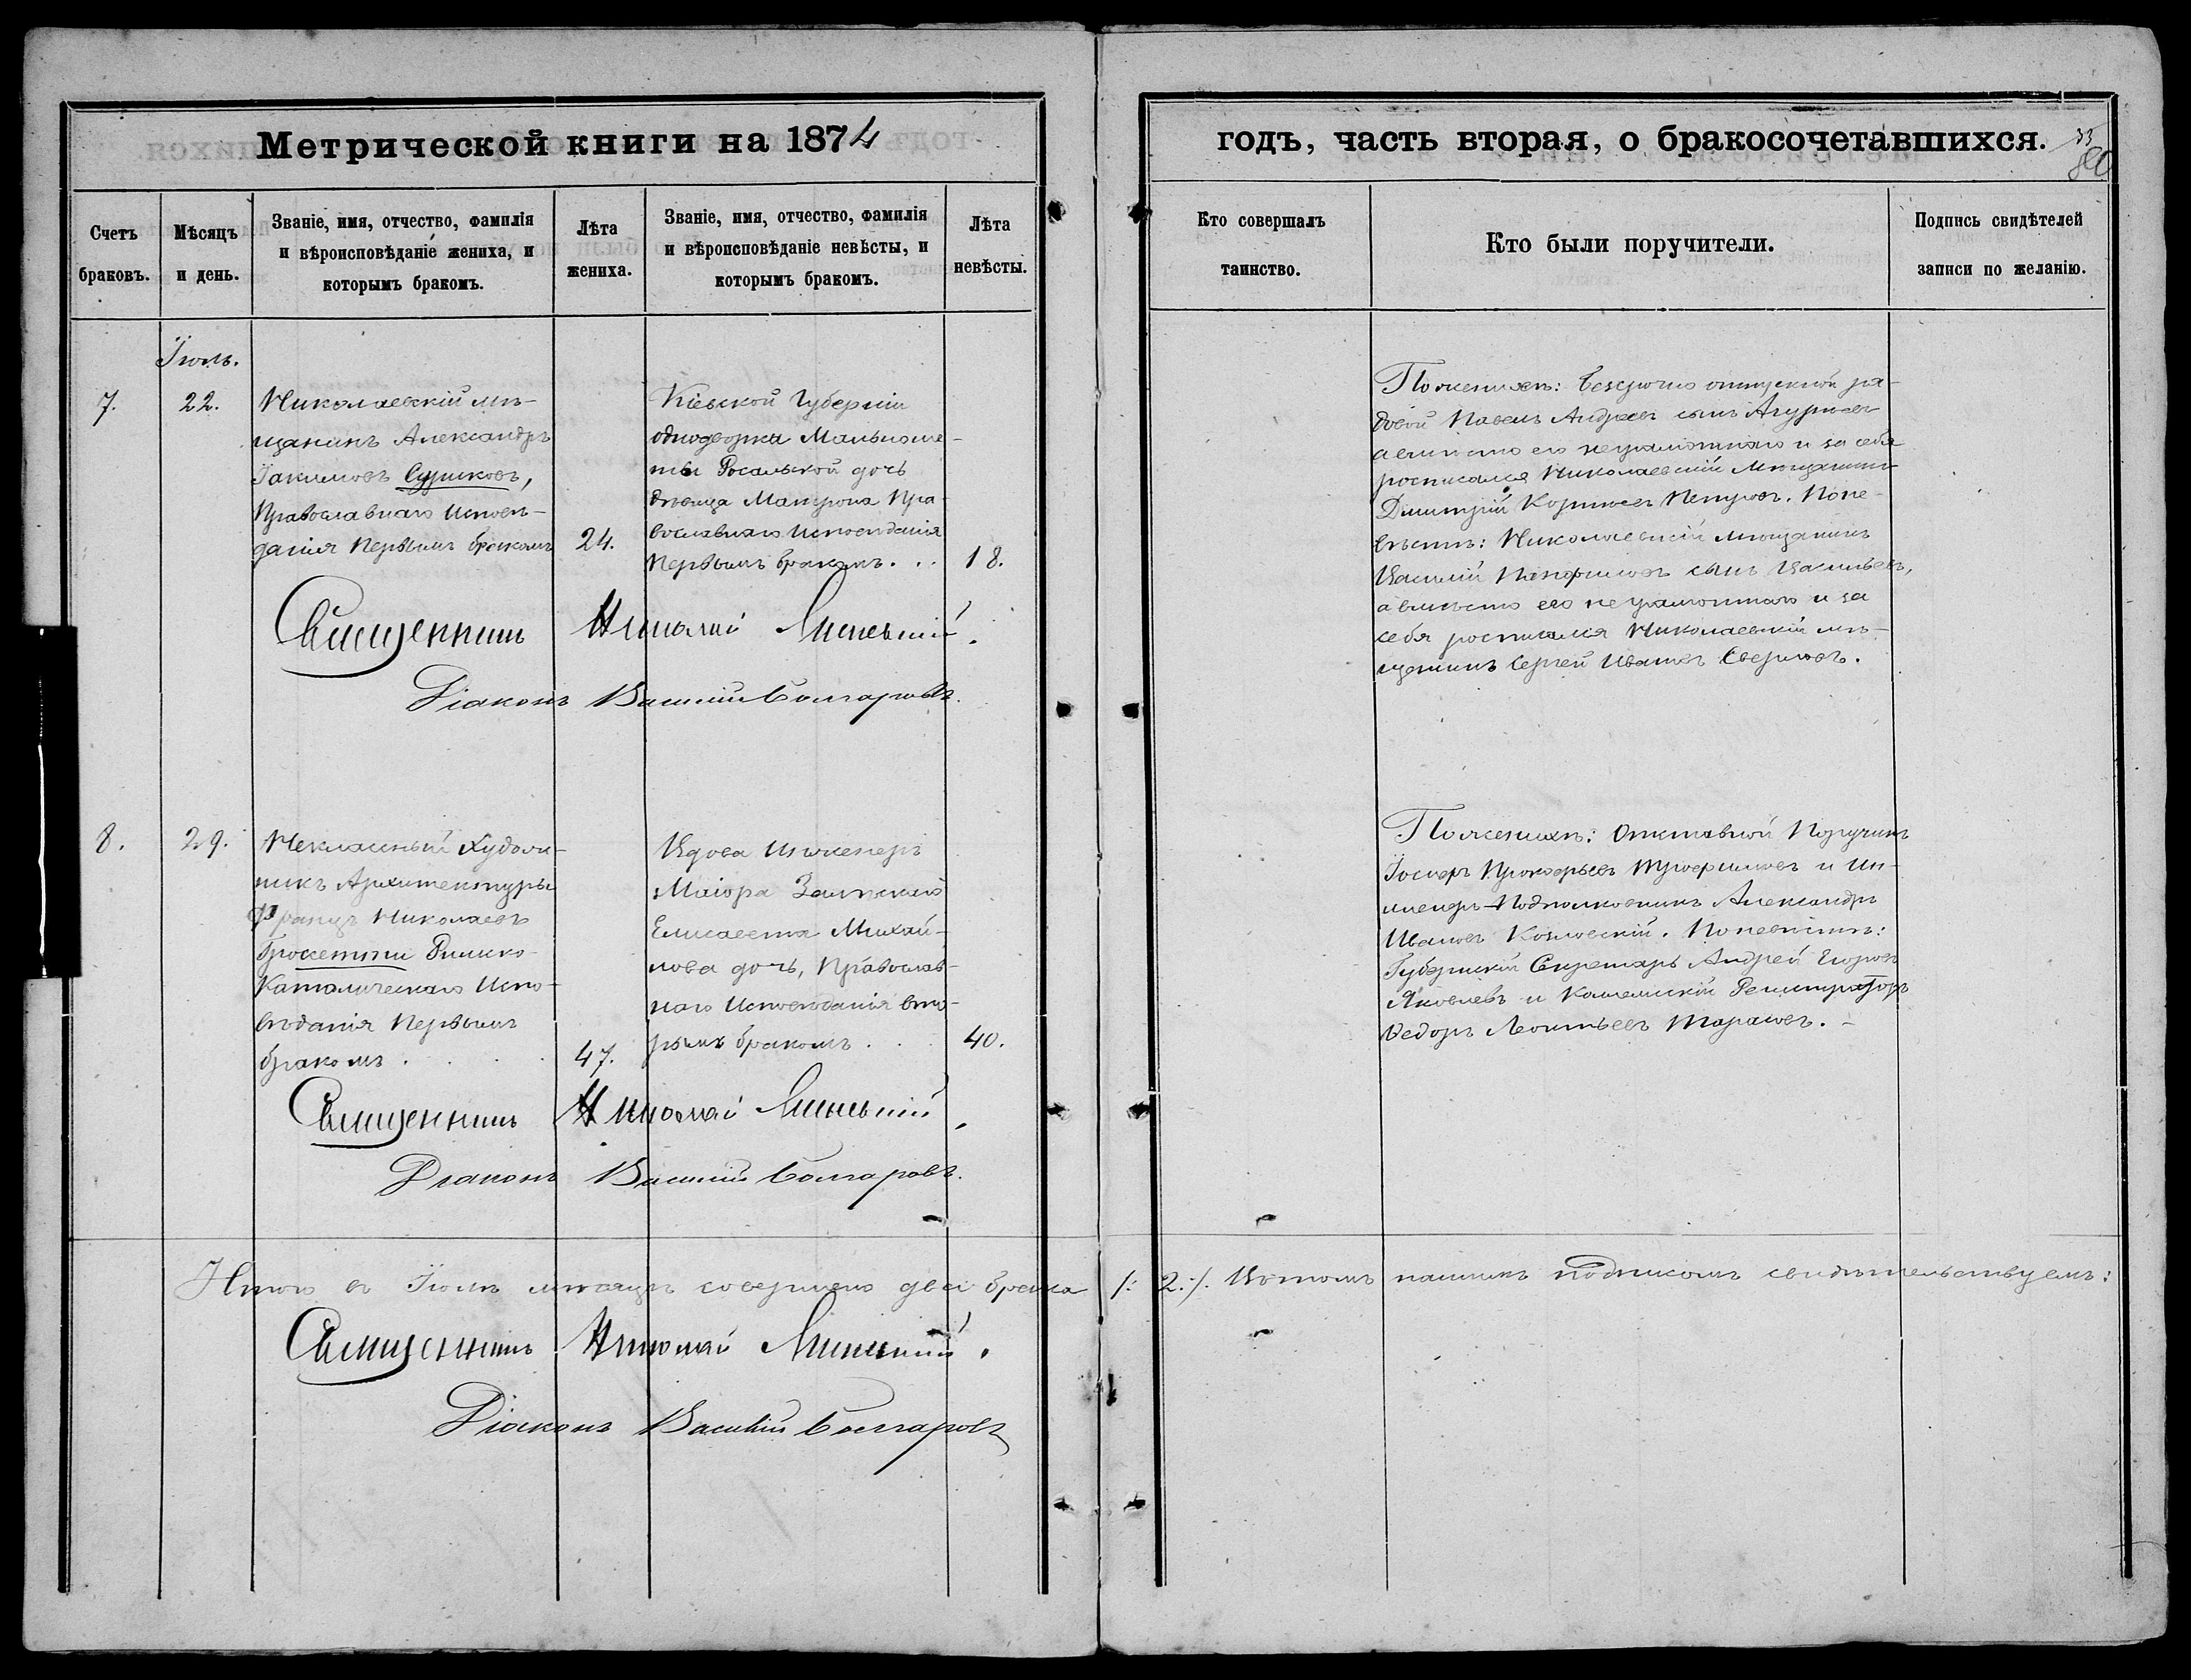 Метрической книги на 1874
годъ, часть вторая, о бракосочетавшихся.
33
80
Счетъ браковъ.
Мѣсяцъ и день.
Званіе, имя, отчество, фамилія
и вѣроисповѣданіе жениха, и
которымъ бракомъ.
Лѣта жениха.
Званіе, имя, отчество, фамилія
и вѣроисповѣданіе невѣсты, и
которымъ бракомъ.
Лѣта невѣсты.
Кто совершалъ
таинство.
Кто были поручители.
Подпись свидѣтелей
записи по желанію.
Іюль.
7.
22.
Николаевскій мѣ-
щанинъ Александръ
Іакимовъ Сушковъ,
Православнаго Исповѣ-
данія Первымъ бракомъ
24.
Кіевской Губерніи
однодворки
дочь
дѣвица Матрона Пра-
вославнаго Исповѣданія
Первымъ бракомъ. . .
18.
По женихѣ: безсрочно отпускной ря-
довой Павелъ Андреевъ сынъ
а вмѣсто его неграмотнаго и за себя
росписался Николаевскій Мѣщанинъ
Дмитрій Петровъ. По не-
вѣстѣ: Николаевскій мѣщанинъ
Василій сынъ Васильевъ,
а вмѣсто его неграмотнаго и за
себя росписался Николаевскій мѣ-
щанинъ Сергѣй Ивановъ
Священникъ Николай
Діаконъ Василій Болгаровъ.
8.
29.
Неклассный Худож-
никъ Архитектуры
Францъ Николаевъ
Гросетти Римско-
Католическаго Испо-
вѣданія Первымъ
бракомъ . . . .
47.
Вдова Инженеръ
Маіора
Елисавета Михай-
лова дочь, Православ-
наго Исповѣданія вто-
рымъ бракомъ . . .
40.
По женихѣ: Отставной Поручикъ
Іосифъ Прокофьевъ Трофимовъ и Ин-
женеръ-Подполковникъ Александръ
Ивановъ Козловскій. По невѣстѣ:
Губернскій Секретарь Андрей Егоровъ
Яковлевъ и Коллежскій Регистраторъ
Ѳедоръ Леонтьевъ Тарановъ. -
Священникъ Николай
Діаконъ Василій Болгаровъ.
Итого въ Іюлѣ мѣсяцѣ совершено два брака /: 2 :/. Въ томъ нашимъ подписомъ свидѣтельствуемъ:
Священникъ Николай
Діаконъ Василій Болгаровъ